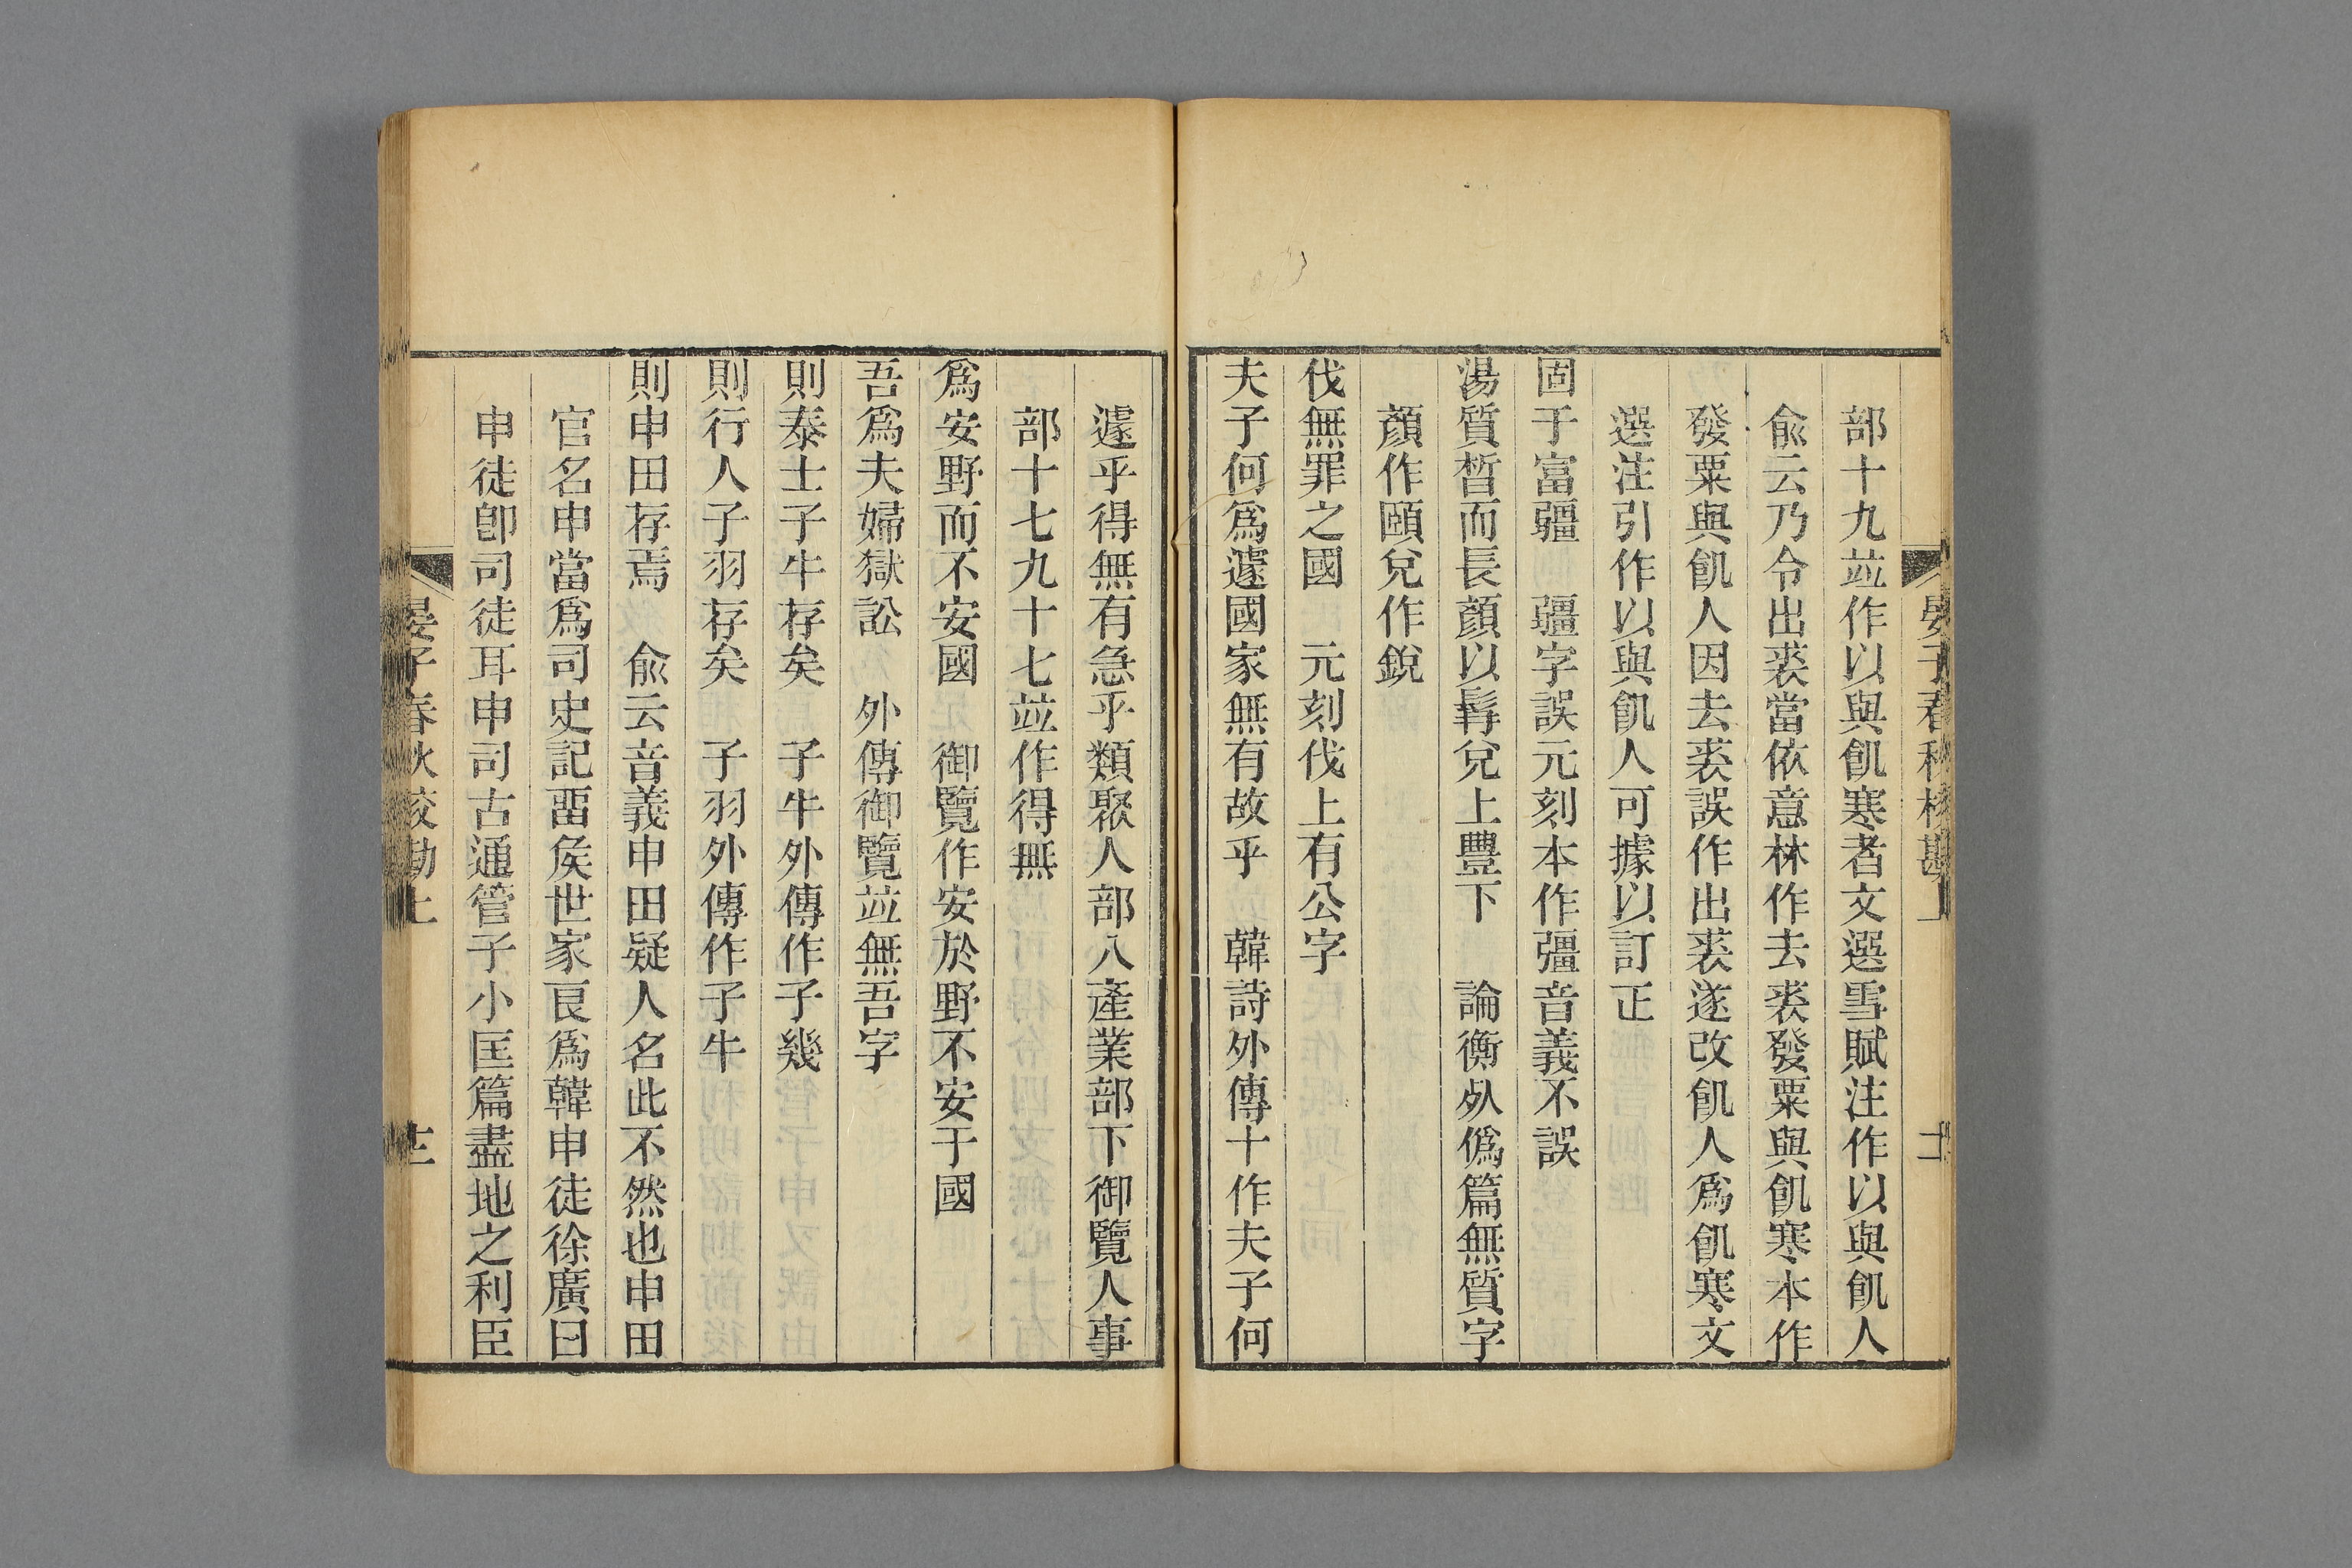 晏子春秋校勘上
部十九竝作以與飢寒者文選雪賦注作以與飢人
俞云乃令出裘當依意林作去裘發粟與飢寒本作
發粟與飢人因去裘誤作出裘遂改飢人爲飢寒文
選注引作以與飢人可據以訂正
固于富疆　疆字誤元刻本作彊音義不誤
湯質晳而長顏以髯兌上豐下　論衡𣦸僞篇無質字
顏作頤兌作銳
伐無罪之國　元刻伐上有公字
夫子何爲遽國家無有故乎　韓詩外傳十作夫子何
遽乎得無有急乎類聚人部八產業部下御覽人事
部十七九十七竝作得無
爲安野而不安國　御覽作安於野不安于國
吾爲夫婦獄訟　外傳御覽竝無吾字
則泰士子牛存矣　子牛外傳作子幾
則行人子羽存矣　子羽外傳作子牛
則申田存焉　俞云音義申田疑人名此不然也申田
官名申當爲司史記畱矦世家良爲韓申徒徐廣曰
申徒卽司徒耳申司古通管子小匡篇盡地之利臣
晏子春秋校勘上